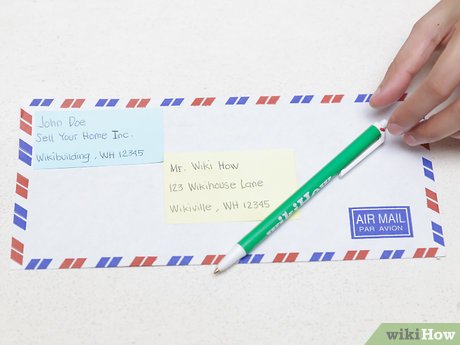 John Doe
Sell Your Home Inc.
Wikibuilding, WH 12345
Mr. Wiki How
123 Wikihouse Lane
Wikiville, WH 12345
wikiHow
AIR MAIL
PAR AVION
wikiHow